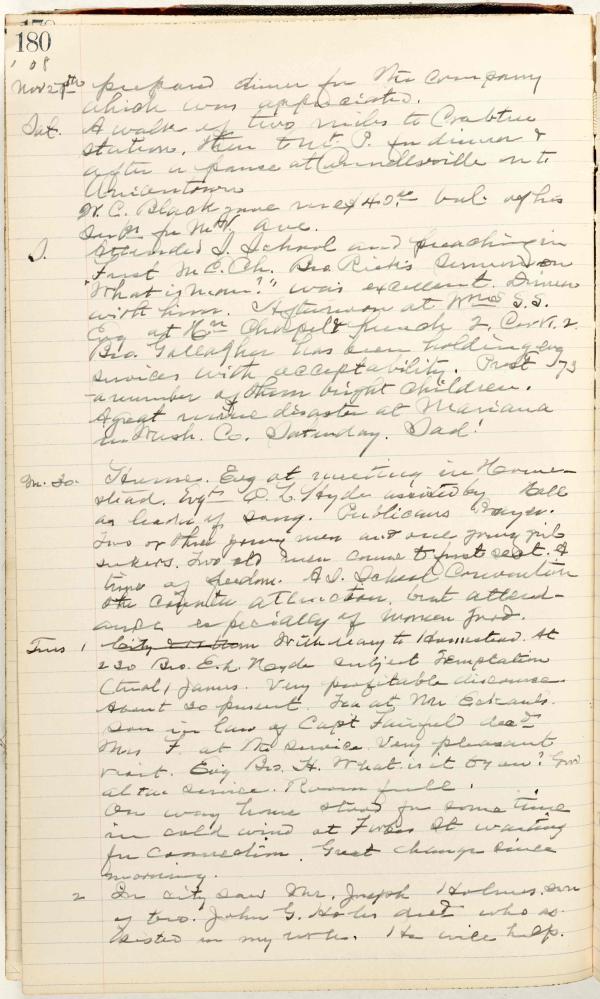 180
'08
Nov 27th prepared dinner for the company
which was appreciated.
Sat. A walk of two miles to Crabtree
Station, then to Mt. P. for dinner &
after a pause at Connellsville on to
Uniontown
W. C. Black gave me $40.00 bal. of his
for Ave.
S. Attended S. School and preaching in
First M. E. Ch. Bro. Risk's sermon on
"What is man?" was excellent. Dinner
with him. Afternoon at S. S.
Evg at Chapel & preach 2. Cor. V. 2.
Bro. Gallagher has been holding evg
services with acceptability. Prest 73
a number of them bright children.
A great mine disaster at Mariana
in Wash. Co. Saturday. Sad!
M. 30. Home. Evg at meeting in Home-
stead. Evgt. D. L. Hyde assisted by Hall
as leader of song. Publicans Prayer.
Two or three young men and one young girl
seekers. Two old men came to front seat. A
type of . A S. School Convention
the counter attraction, but attend-
ance especially of women good.
Tues 1 With Mary to Homestead. At
2 30 Bro. E. L. Hyde subject Temptation
(trial) James. Very profitable discourse
About 30 present. Tea at Mr.
son in law of Capt decd
Mrs F. at the service. Very pleasant
visit. Evg Bro. H. What is it to you? Good
altar service. Room full.
On way home stood for some time
in cold wind at Forbes St waiting
for connection. Great change since
morning.
2 In city saw Mr. Joseph Holmes, son
of Bro. John G. who as-
sisted in my work. He will help.